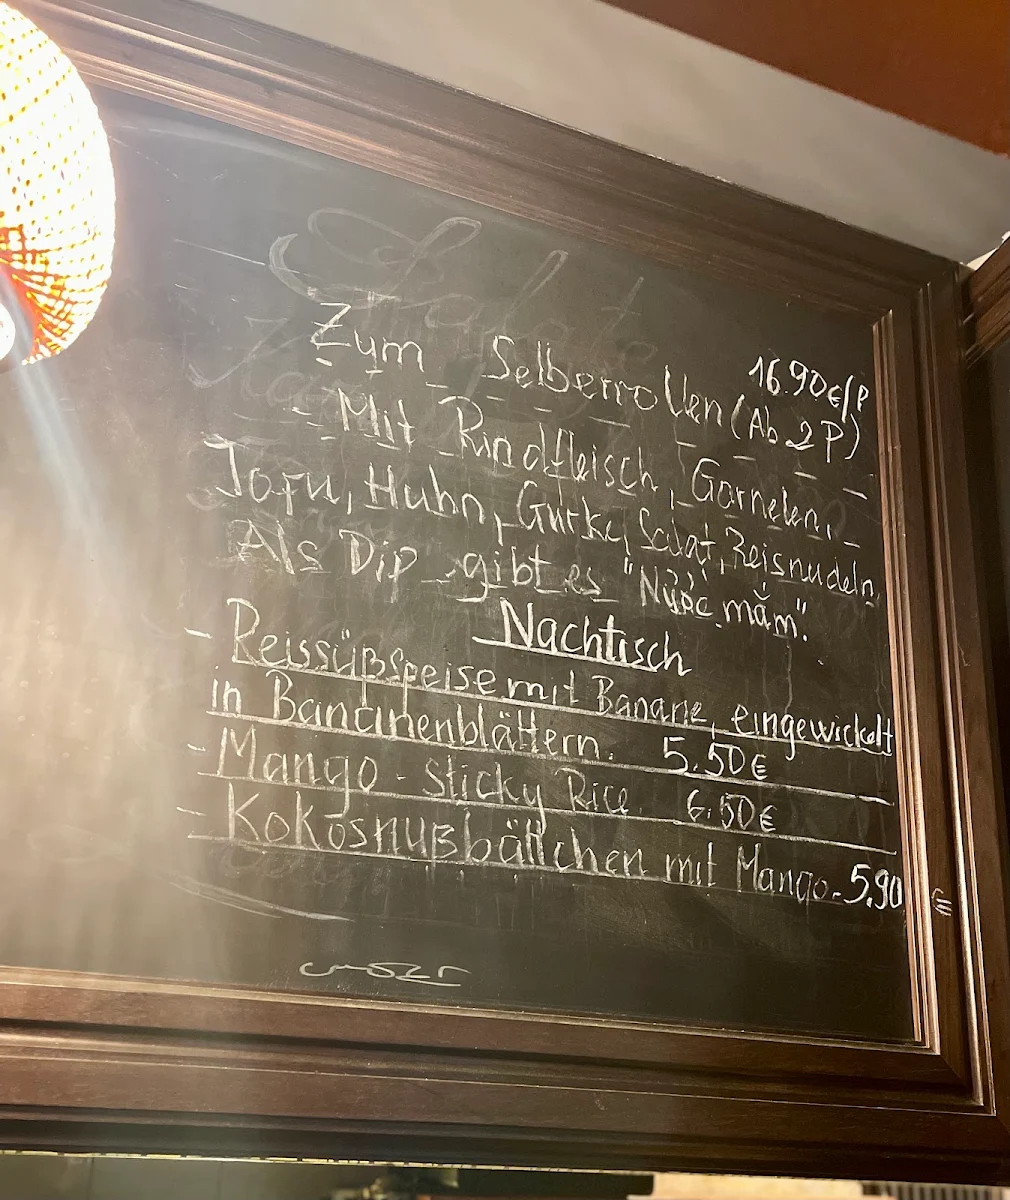 Zum Selberrollen (Ab 2P) 16.90€/P
Mit Rindfleisch, Garnelen,
Tofu, Huhn, Gurke, Salat, Reisnudeln
Als Dip gibt es "Nước mắm".
Nachtisch
- Reissüßspeise mit Banane, eingewickelt
in Bananenblättern. 5.50€
- Mango - Sticky Rice 6.50€
- Kokosnußbällchen mit Mango - 5.90 €